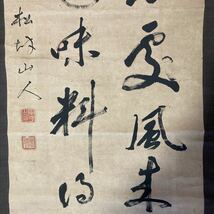 處風来
味料得
松坡山人